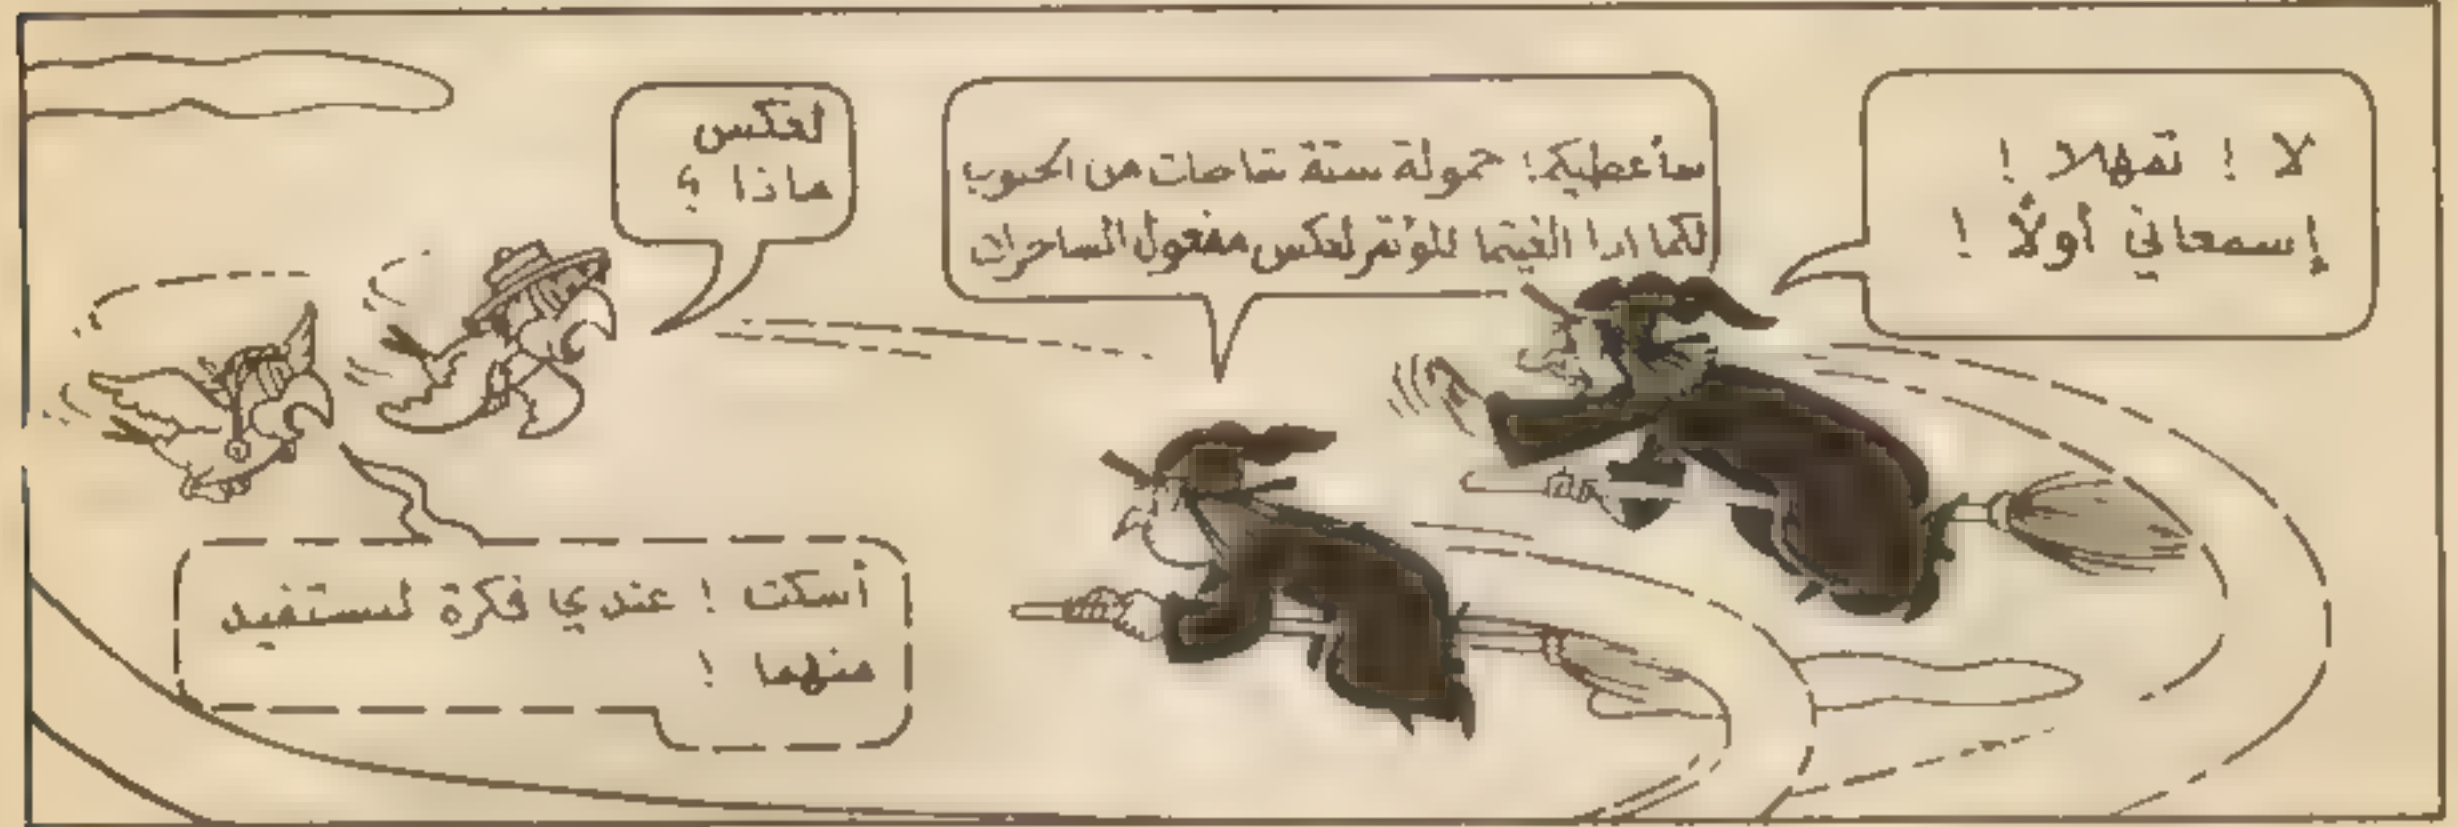 لا ! تمهلا !
إسمعاني أولًا !
سأعطيكما حمولة ستة شاحنات من الحبوب
لكما اذا الغيتما للؤتمر لعكس مفعول الساحرات
لعكس
ماذا ؟
أسكت ! عندي فكرة لنستفيد
منهما !